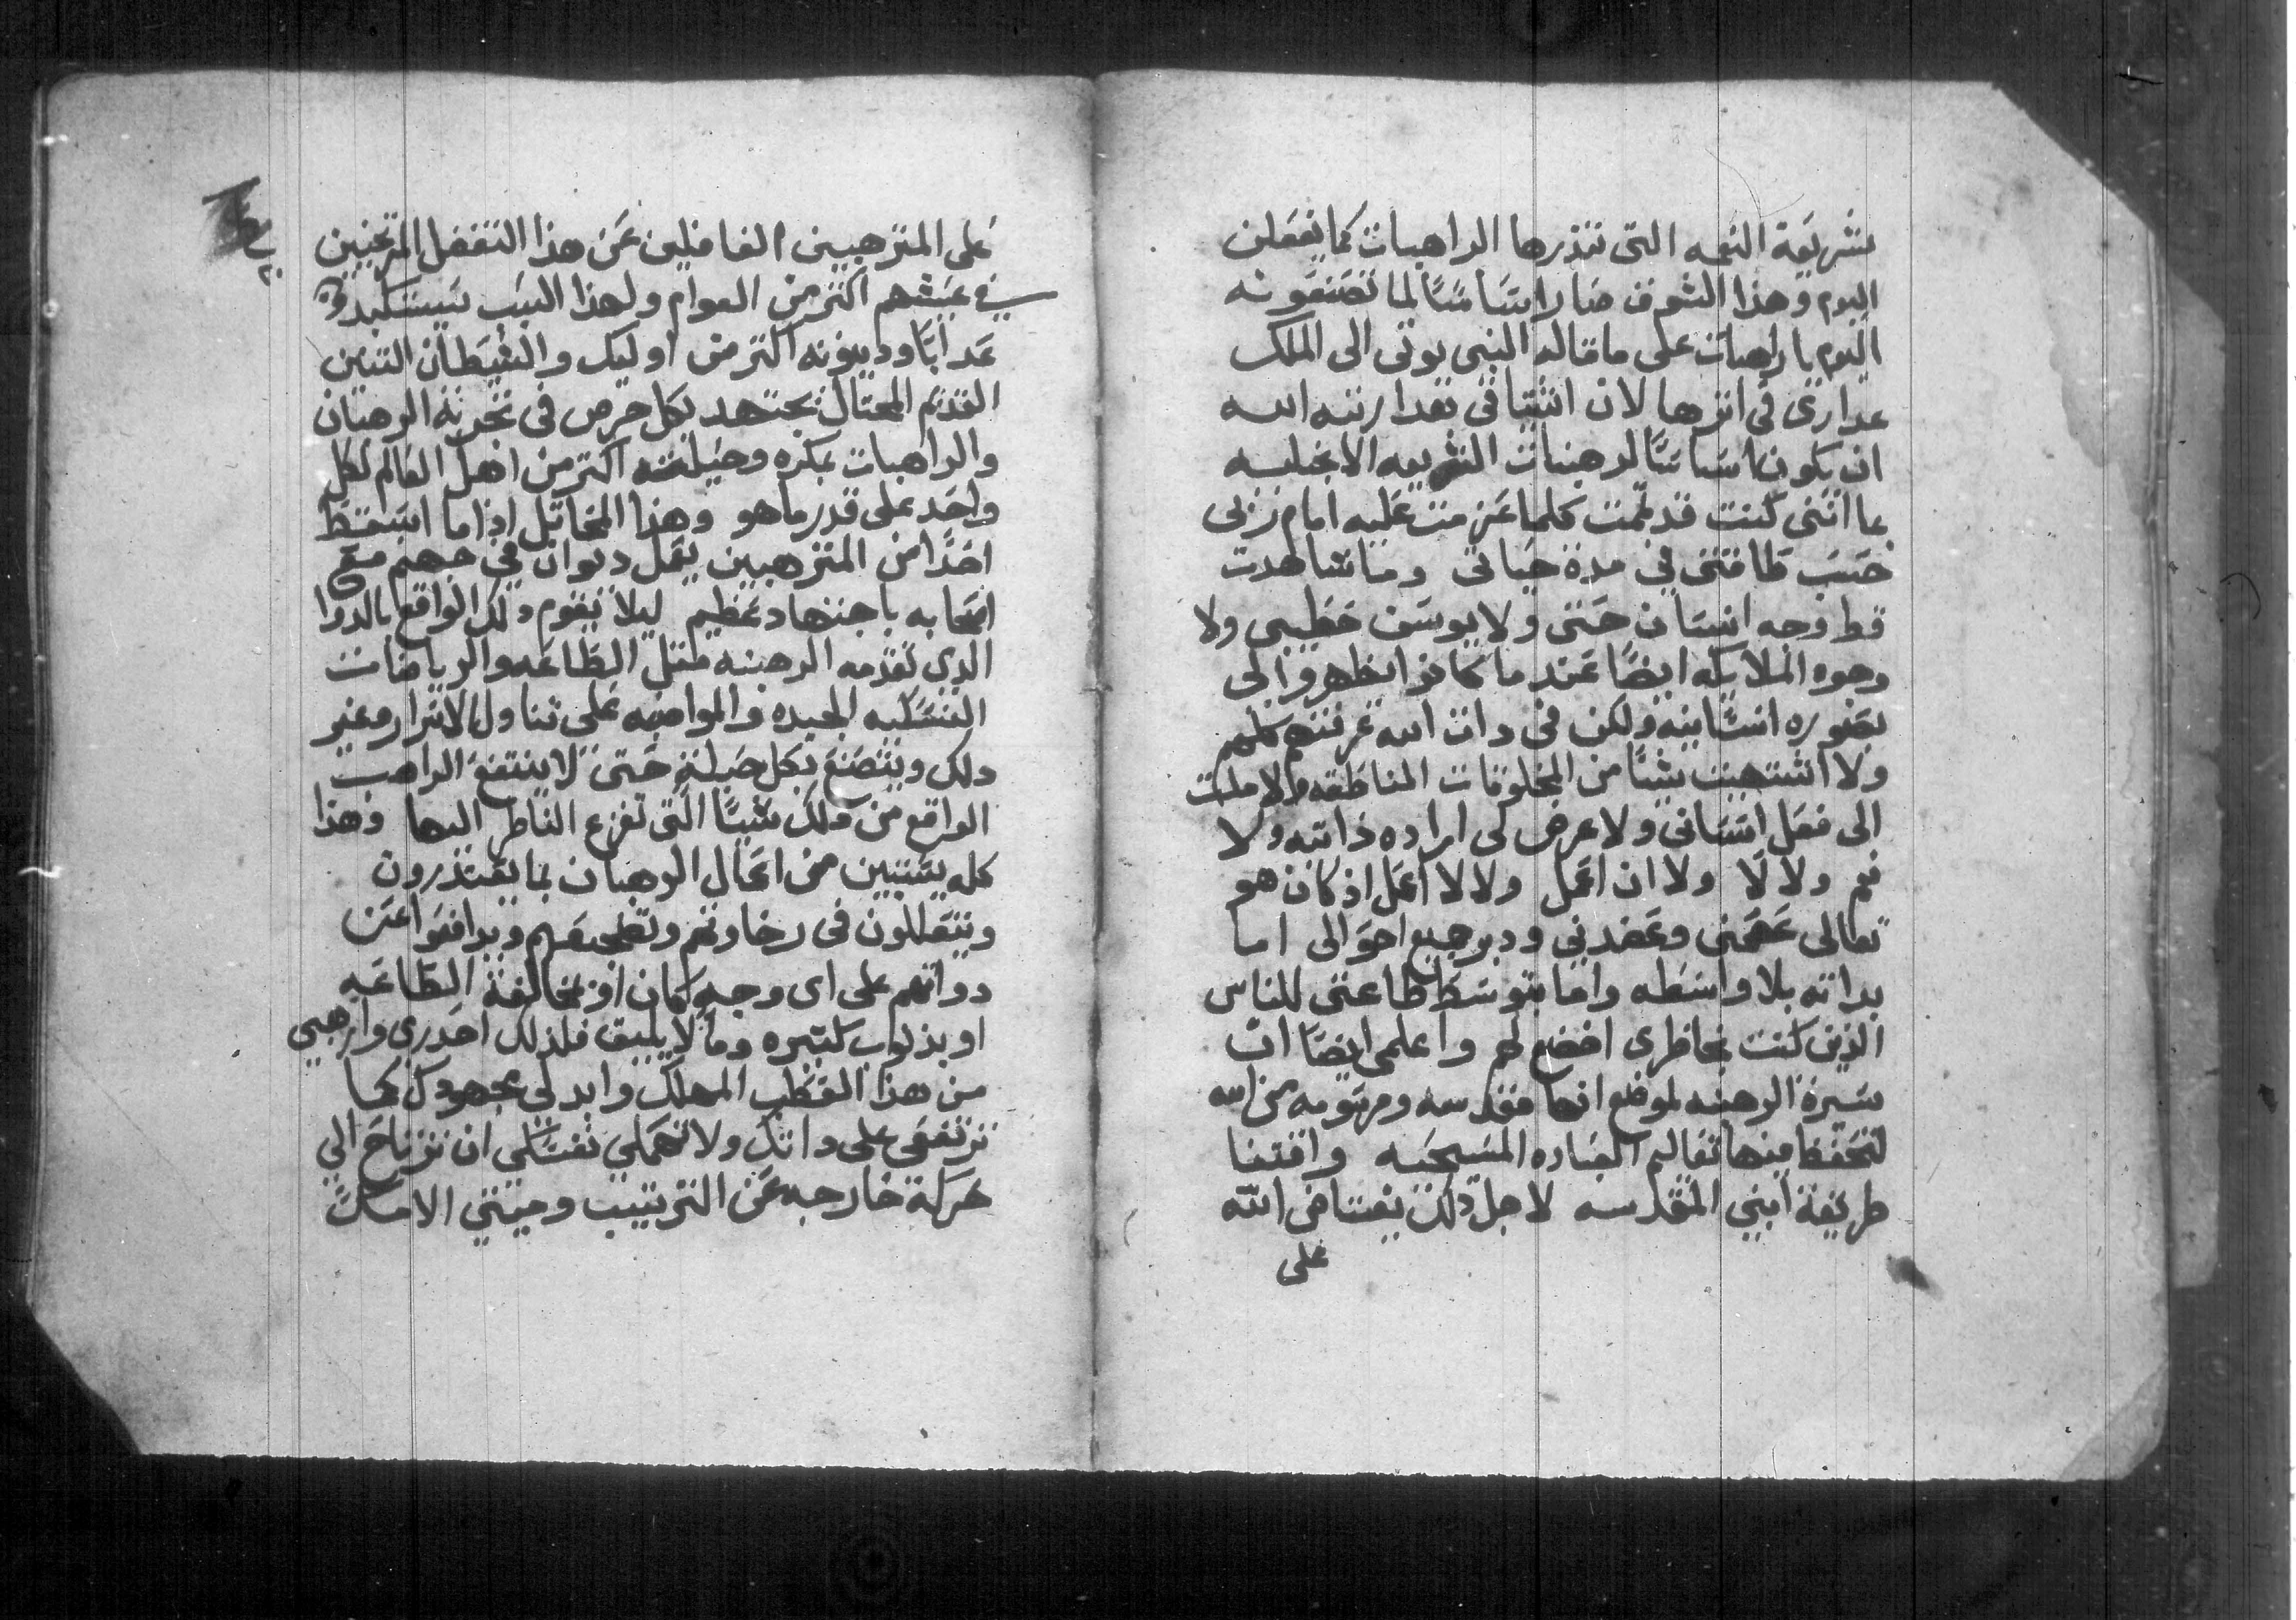 شريعة النعمه التى تنذرها الراهبات كما يفعلن
اليوم وهذا الشوق صار اساسًا لما تصنعونه
اليوم يا راهبات على ما قاله النبى يوتى الى الملك
عدارى فى اثرها لان اشتياقى بعدا رتبه الله
ان يكون اساسًا لرهبنات الشريعه الانجيليه
بما اننى كنت قد تممت كلما عزمت عليه امام ربى
حسب طاقتى فى مدة حياتى وما شاهدت
قط وجه انسان حتى ولا يوسف خطيبى ولا
وجوه الملايكه ايضًا عندما كانوا يظهروا لى
بصوره انسانيه ولكن فى دات الله عرفتهم كلهم
ولا اشتهيت شيًا من المخلوقات الناطقه ولا ملت
الى فعل انسانى ولا عرض لى اراده ذاتيه ولا
نعم ولا لا ولا ان اعمل ولا لا اعمل اذ كان هو
تعالى عصمنى وعضدنى ودبر جميع احوالى اما
بداته بلا واسطه واما بتوسط طاعتى للناس
الذين كنت بخاطرى اخضع لهم واعلمى ايضًا ان
سيرة الرهبنه لموضع انها مقدسه ومرسومه من الله
لتحفظ فيها تعاليم العباده المسيحيه واقتفا
طريقة ابنى المقدسه لاجل دلك يغتاض الله
على
على المترهبين الغافلين عن هذا التغفل المرتخيين
فى عيشهم اكتر من العوام ولهذا السبب سيستكبدوا
عدابًا ودينونه اكتر من اوليك والشيطان التنين
القديم المحتال يجتهد بكل حرص فى تجربة الرهبان
والراهبات بمكره وحيلته اكتر من اهل العالم لكل
واحد على قدر ما هو وهذا المخاتل اذا ما اسقط
احدًا من المترهبين يعمل ديوان فى جهنم مع
اصحابه باجتهاد عظيم ليلا يقوم دلك الواقع بالدوا
الدى تقدمه الرهبنه متل الطاعه والرياضات
النسكيه الجيده والمواضبه على تناول الاسرار وغير
دلك ويتصنع بكل حيلة حتى لا ينتفع الراهب
الواقع من دلك شيًا التى تفزع الناظر اليها وهذا
كله يتبين من اعمال الرهبان بما يعتذرون
ويتعللون فى رخاوتهم وتضجيعهم ويدافعوا عن
دواتهم على اى وجه كان او بمخالفة الطاعه
او بذنوب كتيره وما لا يليق فلذلك احدرى وارهبى
من هذا العطب المهلك وابدلى مجهودك كما
ترتفعى على داتك ولا تهملى نفسك ان ترتاح الى
حركة خارجه عن الترتيب وميتى الامك